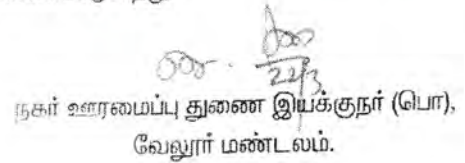 22/3
நகர் ஊரமைப்பு துணை இயக்குநர் (பொ),
வேலூர் மண்டலம்.